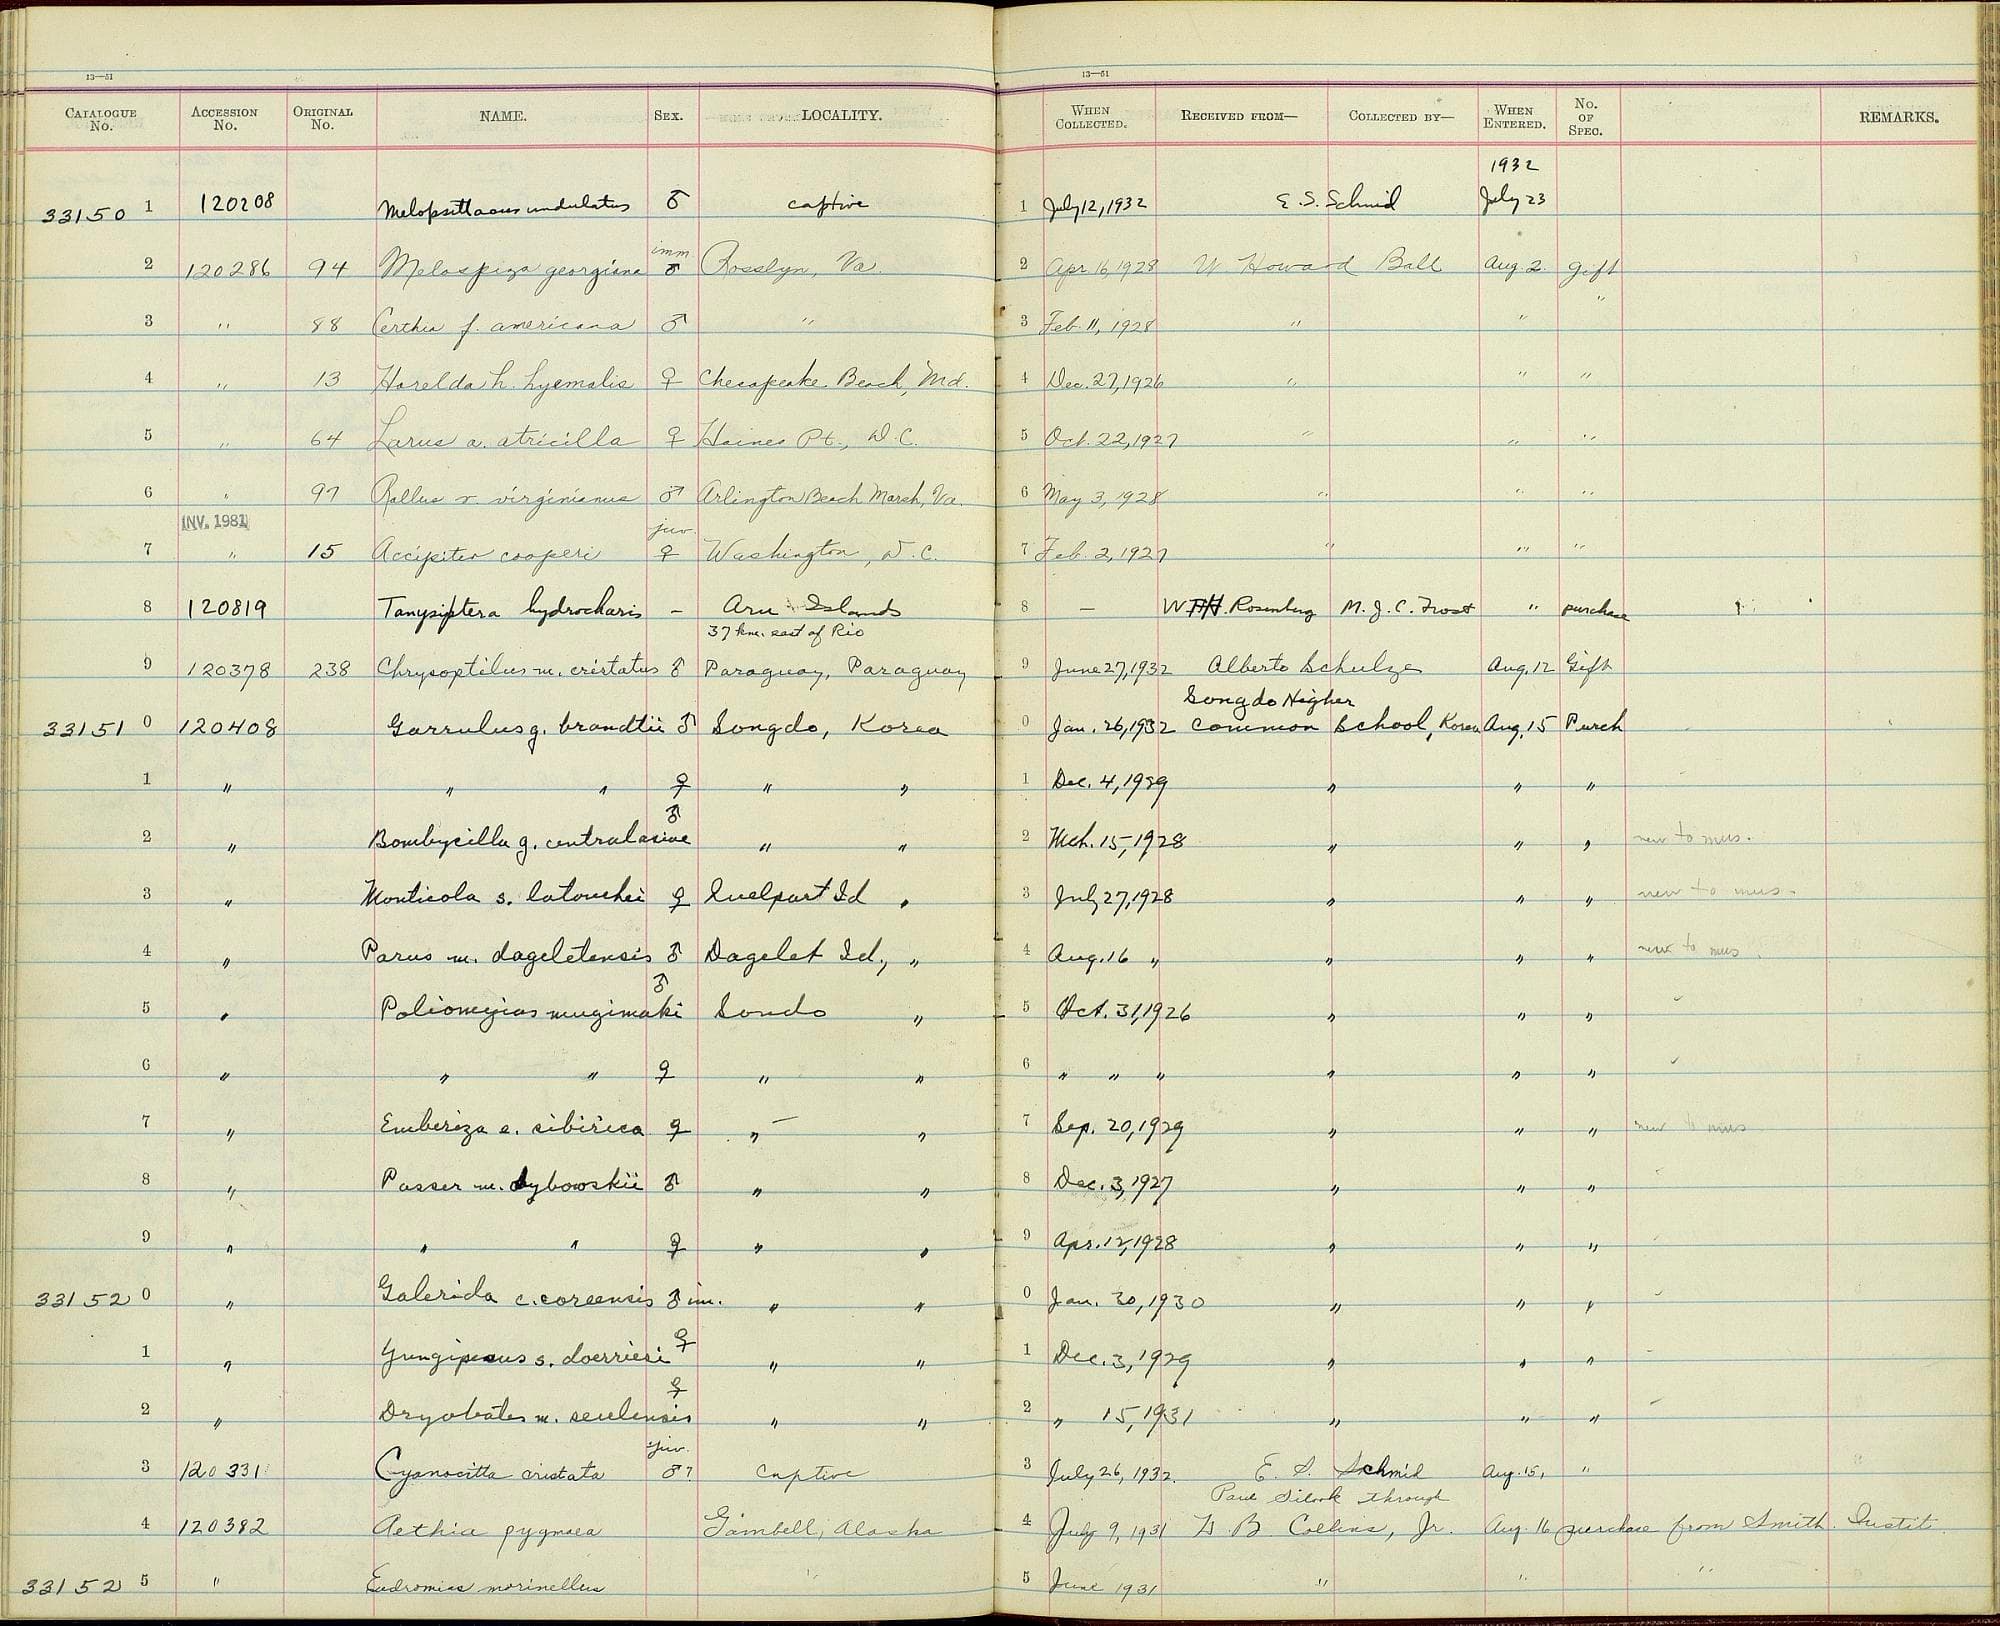 13—51
CATALOGUE No. ACCESSION No. ORIGINAL No. NAME. SEX. LOCALITY.
33150 1 120208 Melopsittacus undulatus ♂ captive
imm
2 120286 94 Melospiza georgiana ♂ Rosslyn, Va.
3 " 88 Certhia f. americana ♂ "
4 " 13 Harelda h. hyemalis ♀ Chesapeake Beach, Md.
5 " 64 Larus a. atricilla ♀ Haines Pt., D.C.
6 " 97 Rallus v. virginianus ♂ Arlington Beach Marsh, Va.
INV. 1981 juv.
7 " 15 Accipiter cooperi ♀ Washington, D.C.
8 120819 Tanysiptera hydrocharis — Aru Islands
37 km. east of Rio
9 120378 238 Chrysoptilus m. cristatus ♂ Paraguay, Paraguay
33151 0 120408 Garrulus g. brandtii ♂ Songdo, Korea
1 " " " ♀ " "
2 " Bombycilla g. centralasiae ♂ " "
3 " Monticola s. latouchei ♀ Quelpart Id "
4 " Parus m. dageletensis ♂ Dagelet Id., "
5 " Poliomyias mugimaki ♂ Sondo "
6 " " " ♀ " "
7 " Emberiza e. sibirica ♀ " "
8 " Passer m. dybowskii ♂ " "
9 " " " ♀ " "
33152 0 " Galerida c. coreensis ♂ im. " "
1 " Yungipicus s. doerriesi ♀ " "
2 " Dryobates m. seulensis ♀ " "
juv.
3 120331 Cyanocitta cristata ♂? Captive
4 120382 Aethia pygmaea Gambell, Alaska
33152 5 " Eudromias morinellus "
13—51
WHEN COLLECTED. RECEIVED FROM— COLLECTED BY— WHEN ENTERED. No. OF SPEC. REMARKS.
1932
1 July 12, 1932 E. S. Schmid July 23
2 Apr. 16, 1928 W Howard Ball Aug. 2. gift
3 Feb. 11, 1928 " " "
4 Dec. 27, 1926 " " "
5 Oct. 22, 1927 " " "
6 May 3, 1928 " " "
7 Feb. 2, 1927 " " "
8 — W.F.H. Rosenberg M. J. C. Frost " purchase
9 June 27, 1932 Alberto Schulze Aug. 12 Gift
Songdo Higher
0 Jan. 26, 1932 Common School, Korea Aug. 15 Purch
1 Dec. 4, 1929 " " "
2 Mch. 15, 1928 " " " new to mus.
3 July 27, 1928 " " " new to mus.
4 Aug. 16 " " " " new to mus.
5 Oct. 31, 1926 " " "
6 " " " " " "
7 Sep. 20, 1929 " " " new to mus
8 Dec. 3, 1927 " " "
9 Apr. 12, 1928 " " "
0 Jan. 30, 1930 " " "
1 Dec. 3, 1929 " " "
2 " 15, 1931 " " "
3 July 26, 1932. E. S. Schmid Aug. 15, "
Paul Silook through
4 July 9, 1931 H. B. Collins, Jr. Aug. 16 purchase from Smith. Instit.
5 June 1931 " " "